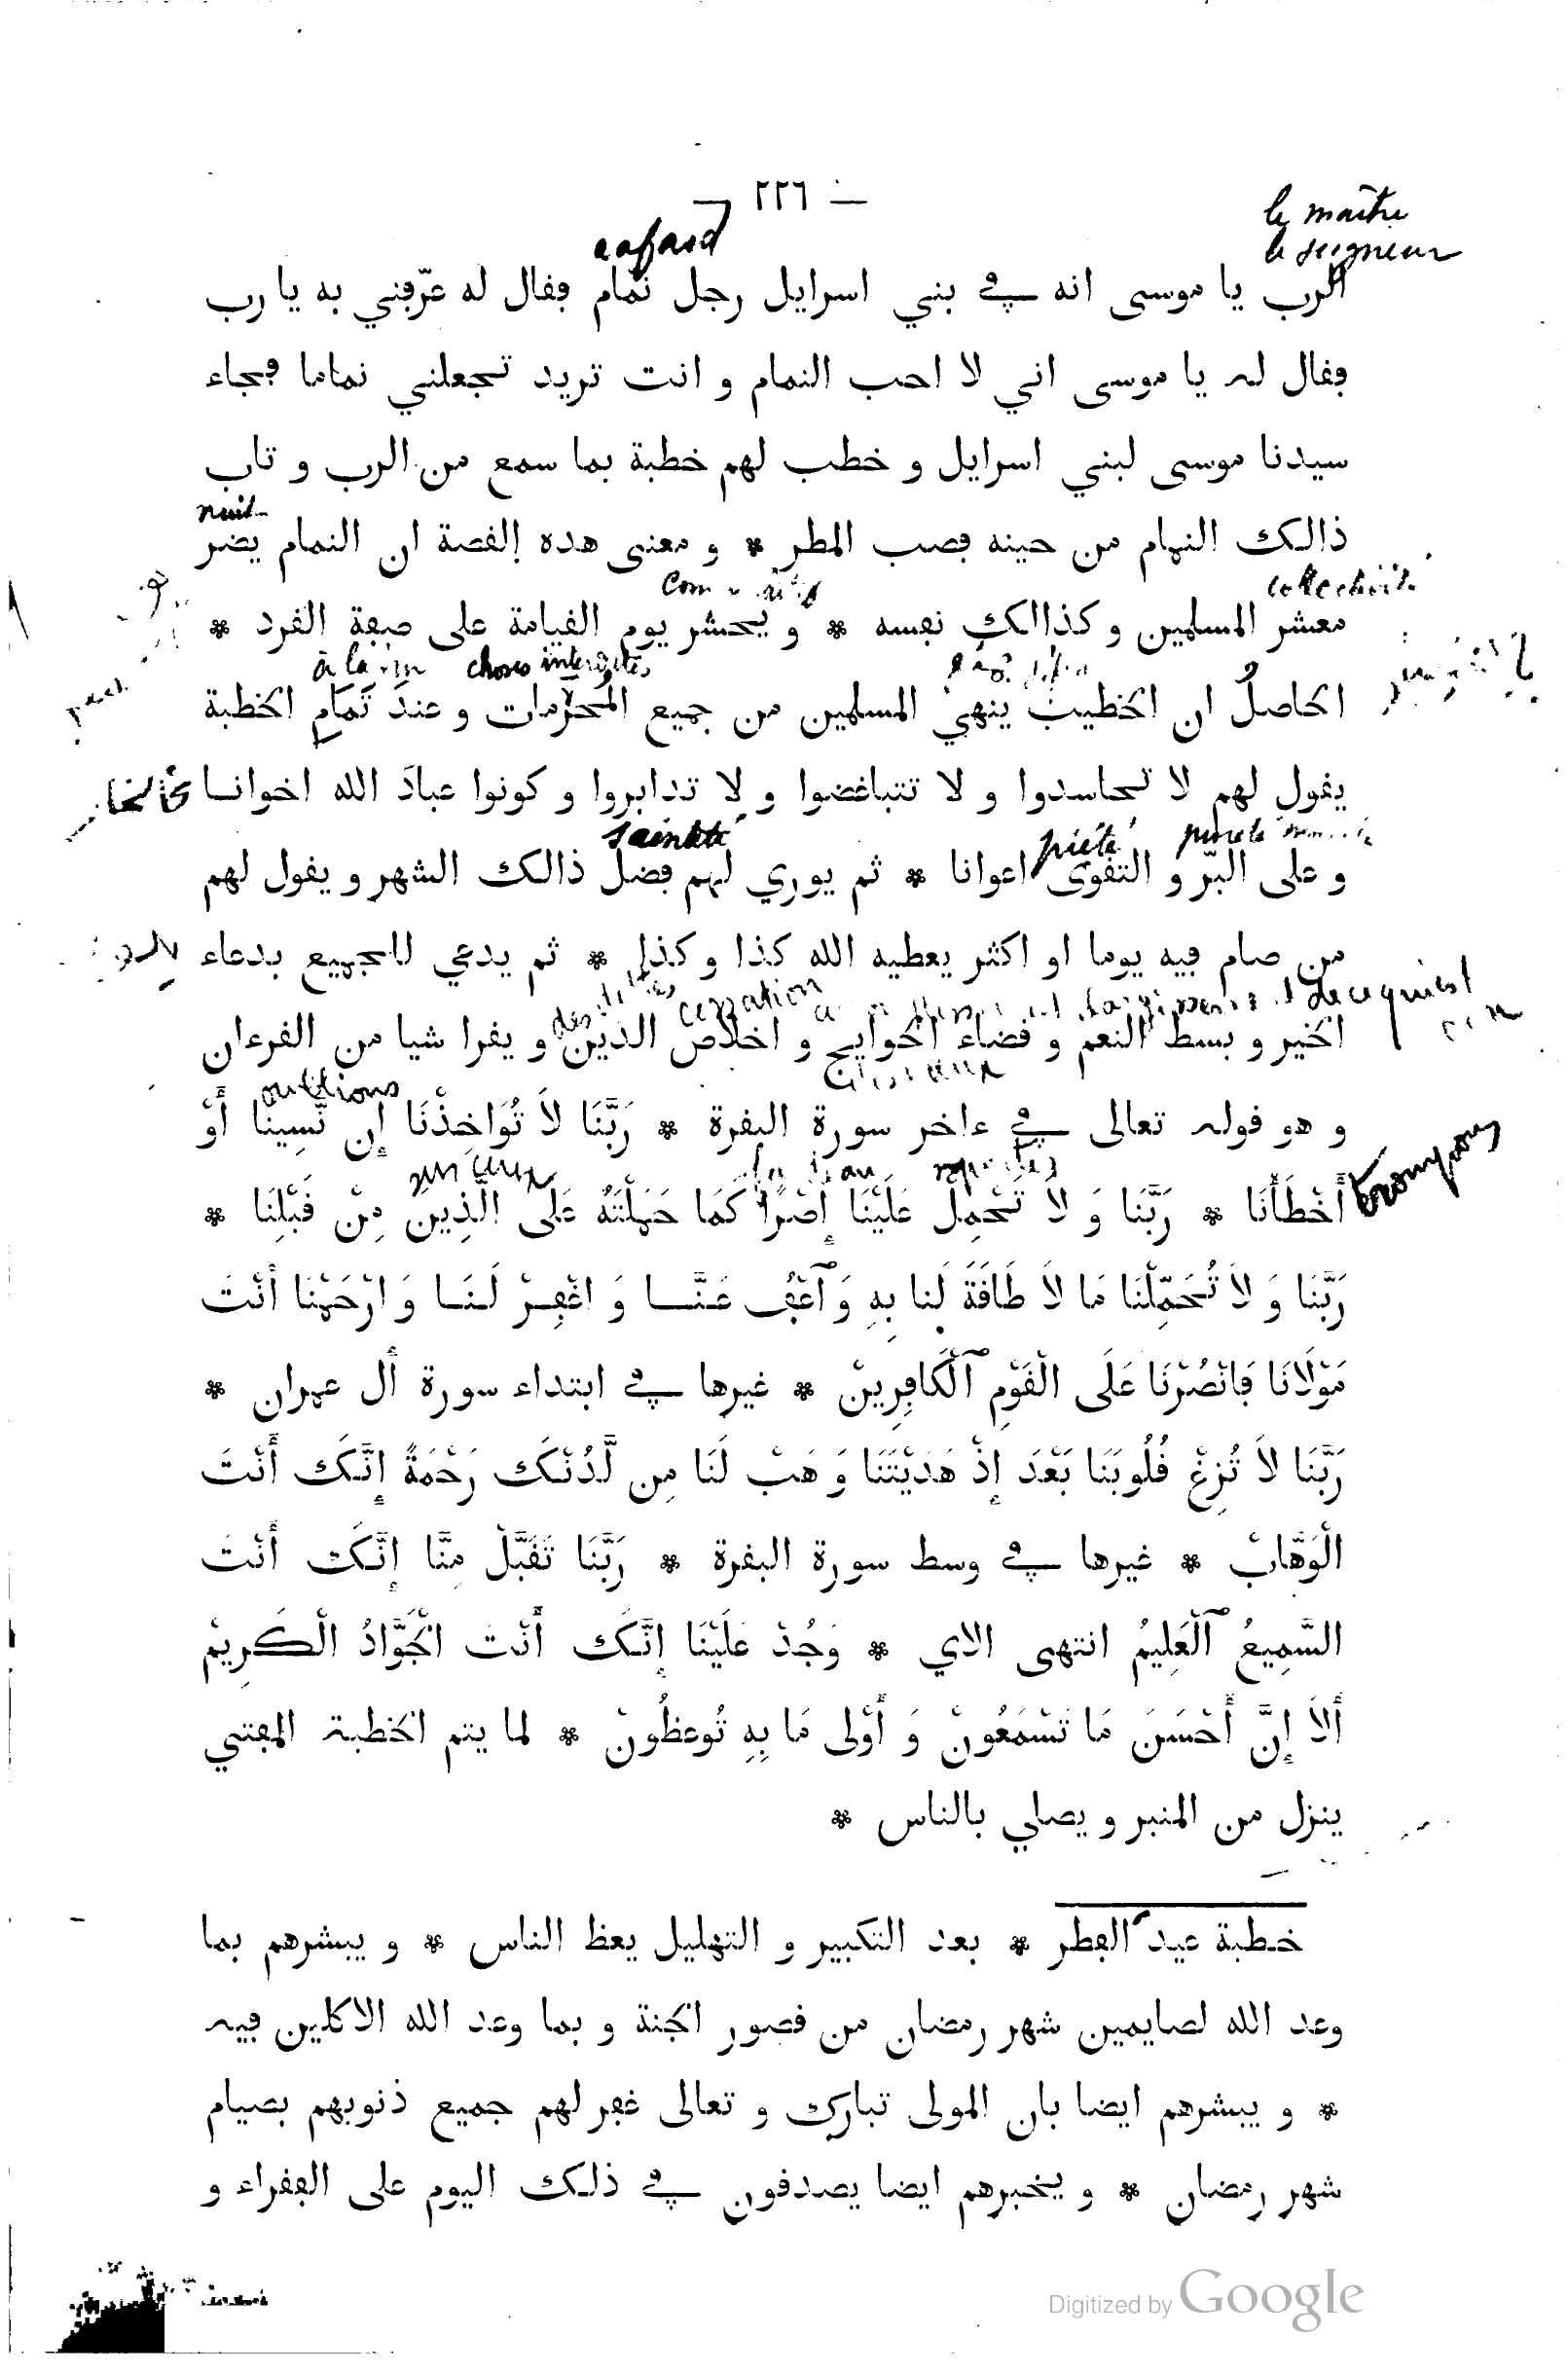 — ٢٢٦ —
le maître
le seigneur
cafard
الرب يا موسى انه في بني اسرايل رجل نمام فقال له عرّفني به يا رب
فقال له يا موسى اني لا احب النمام و انت تريد تجعلني نماما فجاء
سيدنا موسى لبني اسرايل و خطب لهم خطبة بما سمع من الرب و تاب
nuit
ذالك النمام من حينه فصب المطر * و معنى هده القصة ان النمام يضر
معشر المسلمين و كذاالك نفسه * و يحشر يوم القيامة على صفة القرد *
à la fin choses interdites
الحاصلُ ان الخطيب ينهي المسلمين من جميع المحرّمات و عندَ تَمَامِ الخطبة
يقول لهم لا تحاسدوا و لا تتباغضوا و لا تدابروا و كونوا عبادَ الله اخوانا
sainteté piété pureté
و على البرّ و التقوى اعوانا * ثم يوري لهم فضل ذالك الشهر و يقول لهم
من صام فيه يوما او اكثر يعطيه الله كذا و كذا * ثم يدعي للجميع بدعاء
cessation
الخير و بسط النعم و قضاء الحوايج و اخلاص الدين و يقرا شيا من القرءان
oublions
و هو قوله تعالى في ءاخر سورة البقرة * رَبَّنَا لاَ تُوَاخِذْنَا إِن نَّسِينَا أَوْ
trompons
أَخْطَأْنَا * رَبَّنَا وَ لاَ تَحْمِلْ عَلَيْنَا إِصْرًا كَمَا حَمَلْتَهُ عَلَى الَّذِينَ مِنْ قَبْلِنَا *
رَبَّنَا وَ لاَ تُحَمِّلْنَا مَا لاَ طَاقَةَ لَنا بِهِ وَ آعْفُ عَنَّا وَ اغْفِرْ لَنَا وَ ارْحَمْنا أَنْتَ
مَوْلَانَا فَانْصُرْنَا عَلَى الْقَوْمِ ٱلْكَافِرِينْ * غيرها في ابتداء سورة أل عمران *
رَبَّنَا لاَ تُزِغْ قُلُوبَنَا بَعْدَ إِذْ هَدَيْتَنَا وَ هَبْ لَنَا مِن لَّدُنْكَ رَحْمَةً إِنَّكَ أَنْتَ
الْوَهَّابْ * غيرها في وسط سورة البقرة * رَبَّنَا تَقَبَّلْ مِنَّا إِنَّكَ أَنْتَ
السَّمِيعُ ٱلْعَلِيمُ انتهى الاي * وَجُدْ عَلَيْنَا إِنَّكَ أَنْتَ الْجَوَّادُ الْكَرِيمْ
أَلاَ إِنَّ أَحْسَنَ مَا تَسْمَعُونْ وَ أَوْلى مَا بِهِ تُوعظُونْ * لما يتم الخطبة المفتي
ينزل من المنبر و يصلي بالناس *
خطبة عيد الفطر * بعد التكبير و التهليل يعظ الناس * و يبشرهم بما
وعد الله لصايمين شهر رمضان من قصور الجنة و بما وعد الله الاكلين فيه
* و يبشرهم ايضا بان المولى تبارك و تعالى غفر لهم جميع ذنوبهم بصيام
شهر رمضان * و يخبرهم ايضا يصدقون في ذلك اليوم على الفقراء و
Digitized by Google